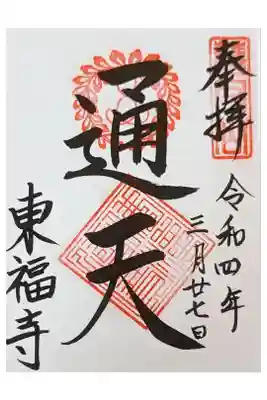 奉拝
令和四年
三月廿七日
通天
東福寺